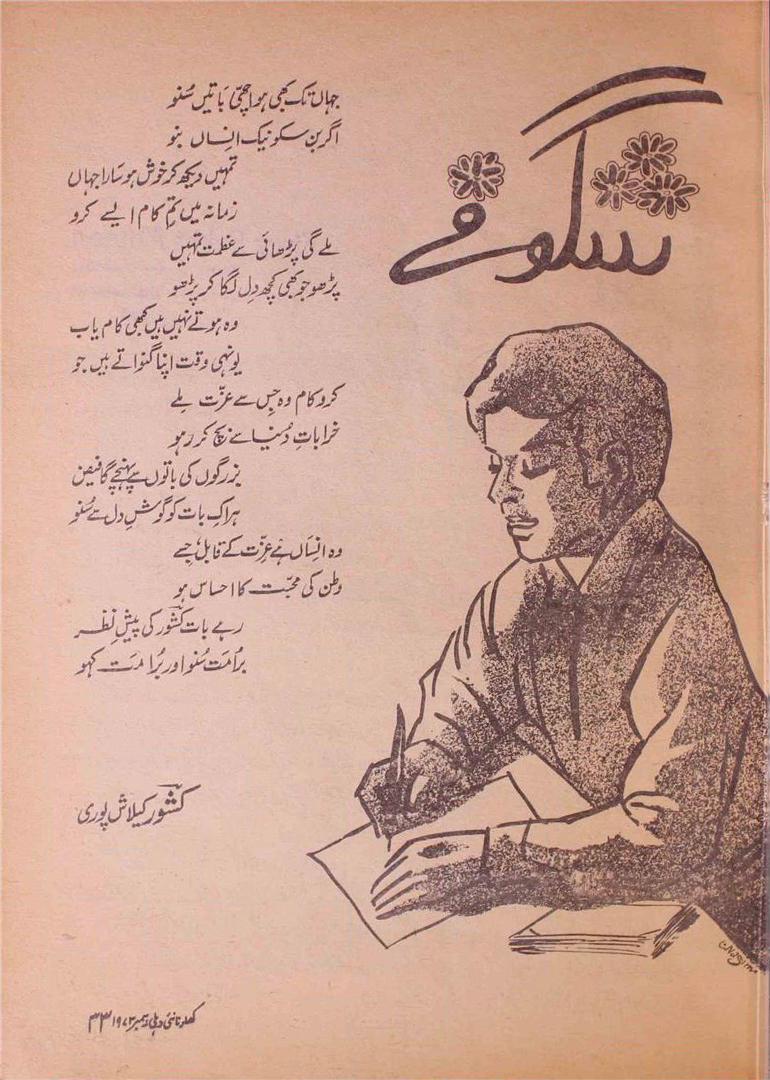 شگوفے
جہاں تک بھی ہو اچھی باتیں سُنو
اگر بن سکو نیک انساں بنو
تمہیں دیکھ کر خوش ہو سارا جہاں
زمانہ میں تم کام ایسے کرو
ملے گی پڑھائی سے عظمت تمہیں
پڑھو جو بھی کچھ دِل لگا کر پڑھو
وہ ہوتے نہیں ہیں کبھی کام یاب
یونہی وقت اپنا گنواتے ہیں جو
کرو کام وہ جِس سے عزّت مِلے
خراباتِ دُنیا سے بچ کر رہو
بزرگوں کی باتوں سے پہنچے گا فیض
ہر اک بات کو گوشِ دل سے سُنو
وہ انساں ہے عزّت کے قابل جسے
وطن کی محبّت کا احساس ہو
رہے بات کشور کی پیشِ نظر
بُرا مَت سُنو اور بُرا مَت کہو
کشور کیلاش پوری
کھلونا نئی دہلی دسمبر ۱۹۷۳ ۳۳